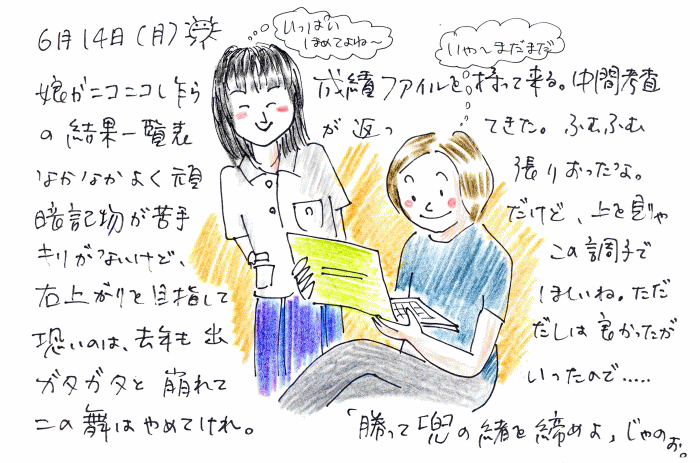 6月14日(月)
いっぱい
ほめてよね〜
いや〜まだまだ
娘がニコニコし乍ら 成績ファイルを持って来る。中間考査
の結果一覧表 が返っ てきた。ふむふむ
なかなかよく頑 張りおったな。
暗記物が苦手 だけど、上を見りゃ
キリがないけど、 この調子で
右上がりを目指して ほしいね。ただ
恐いのは、去年も出 だしは良かったが
ガタガタと崩れて いったので.....
二の舞はやめてけれ。 「勝って兜の緒を締めよ」じゃのぉ。